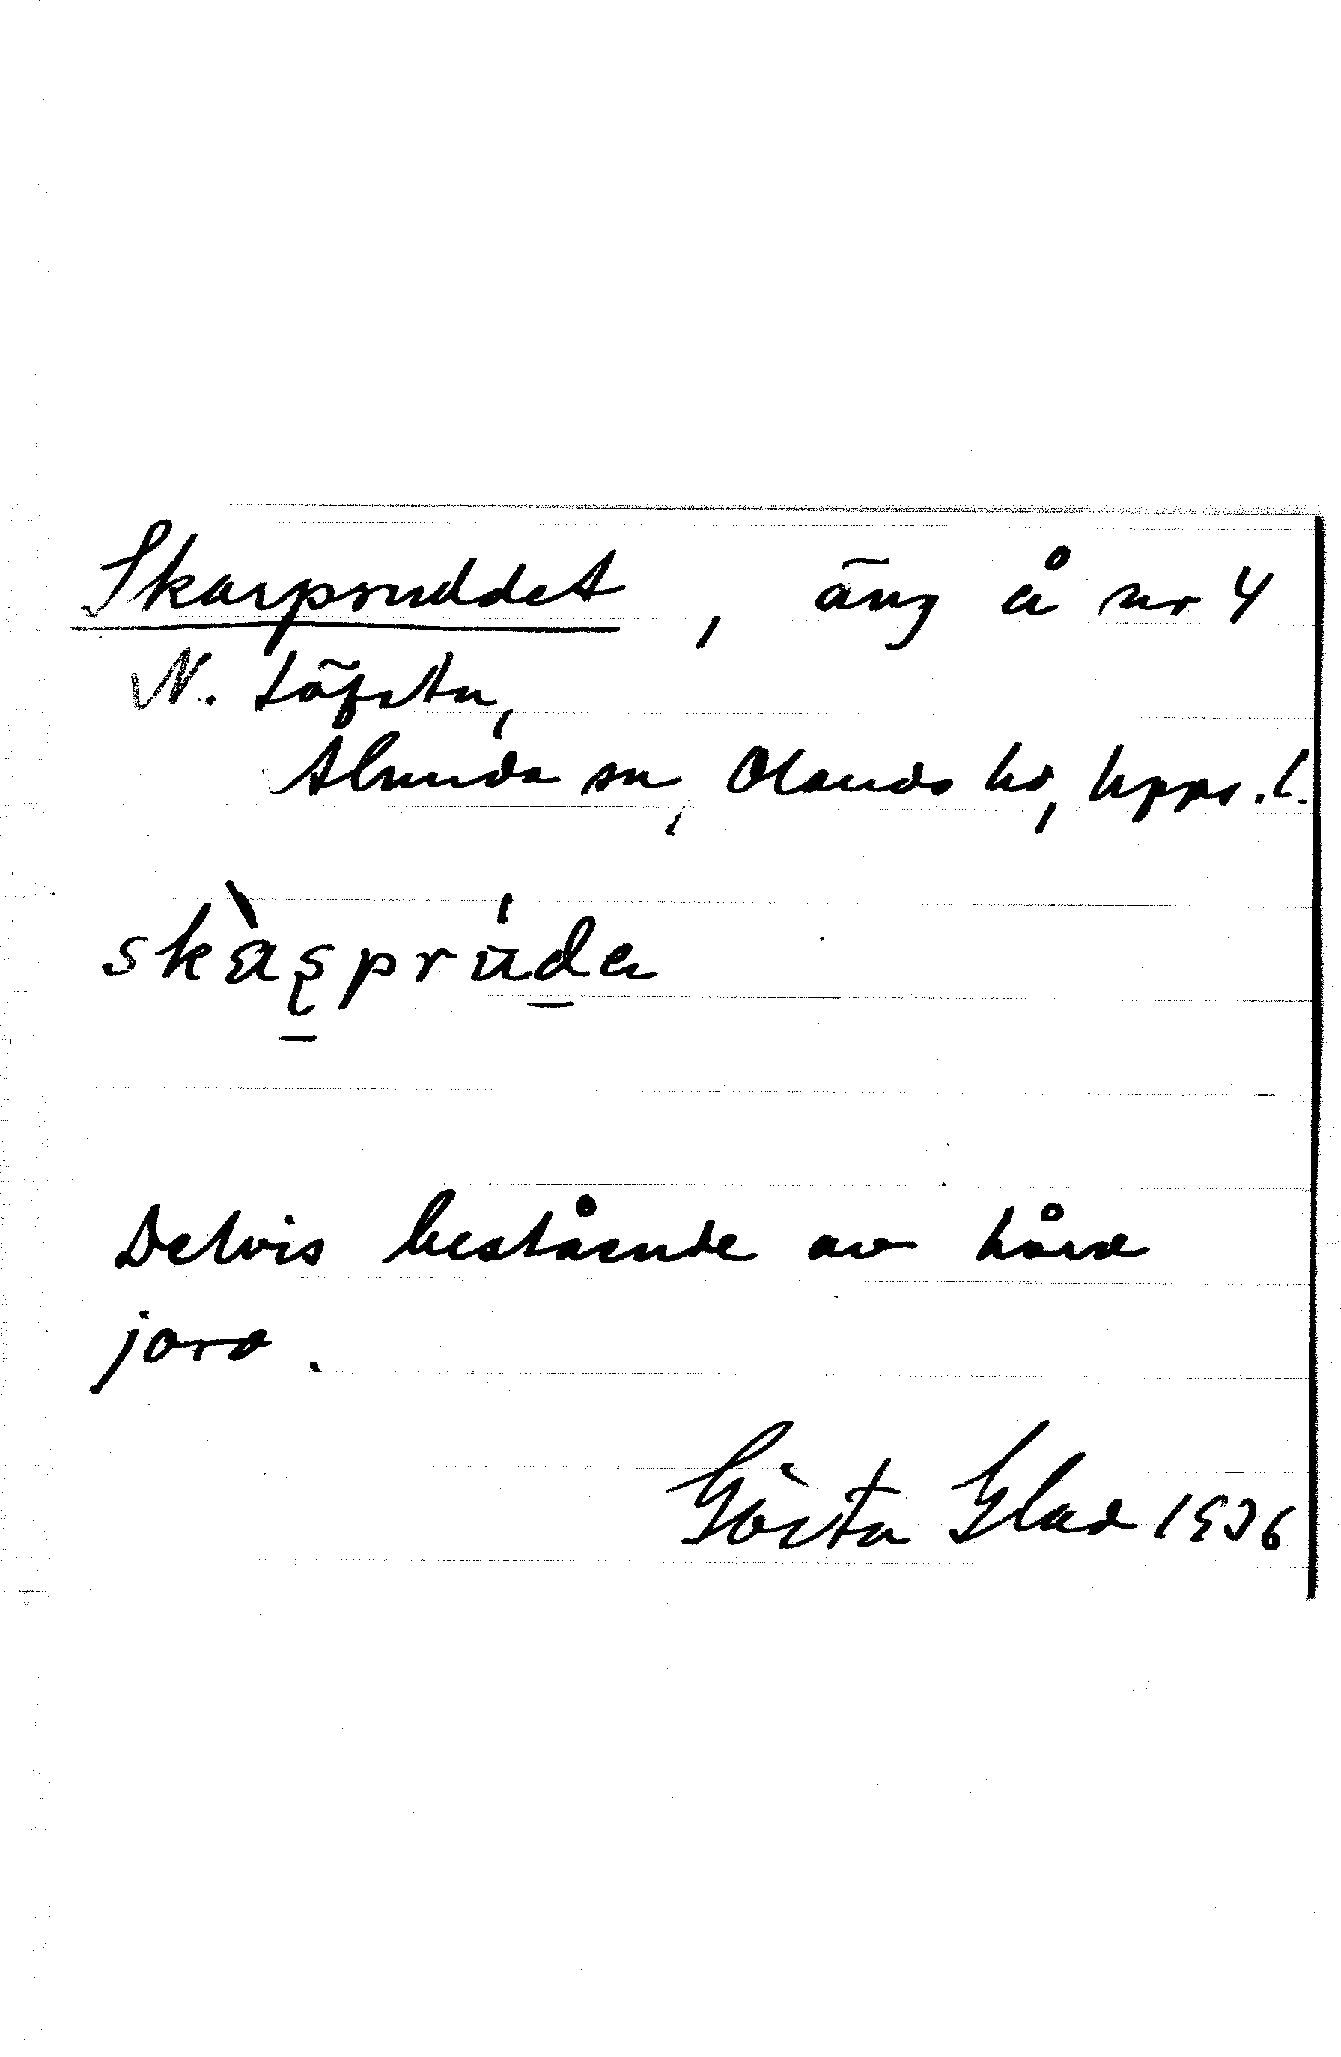 Skarpruddet, äng å nr 4
N. Löfsta,
Alunda sn, Olands hd, Upps. l.
skàʂprúda
Delvis bestående av hård
jord.
Gösta Glad 1936